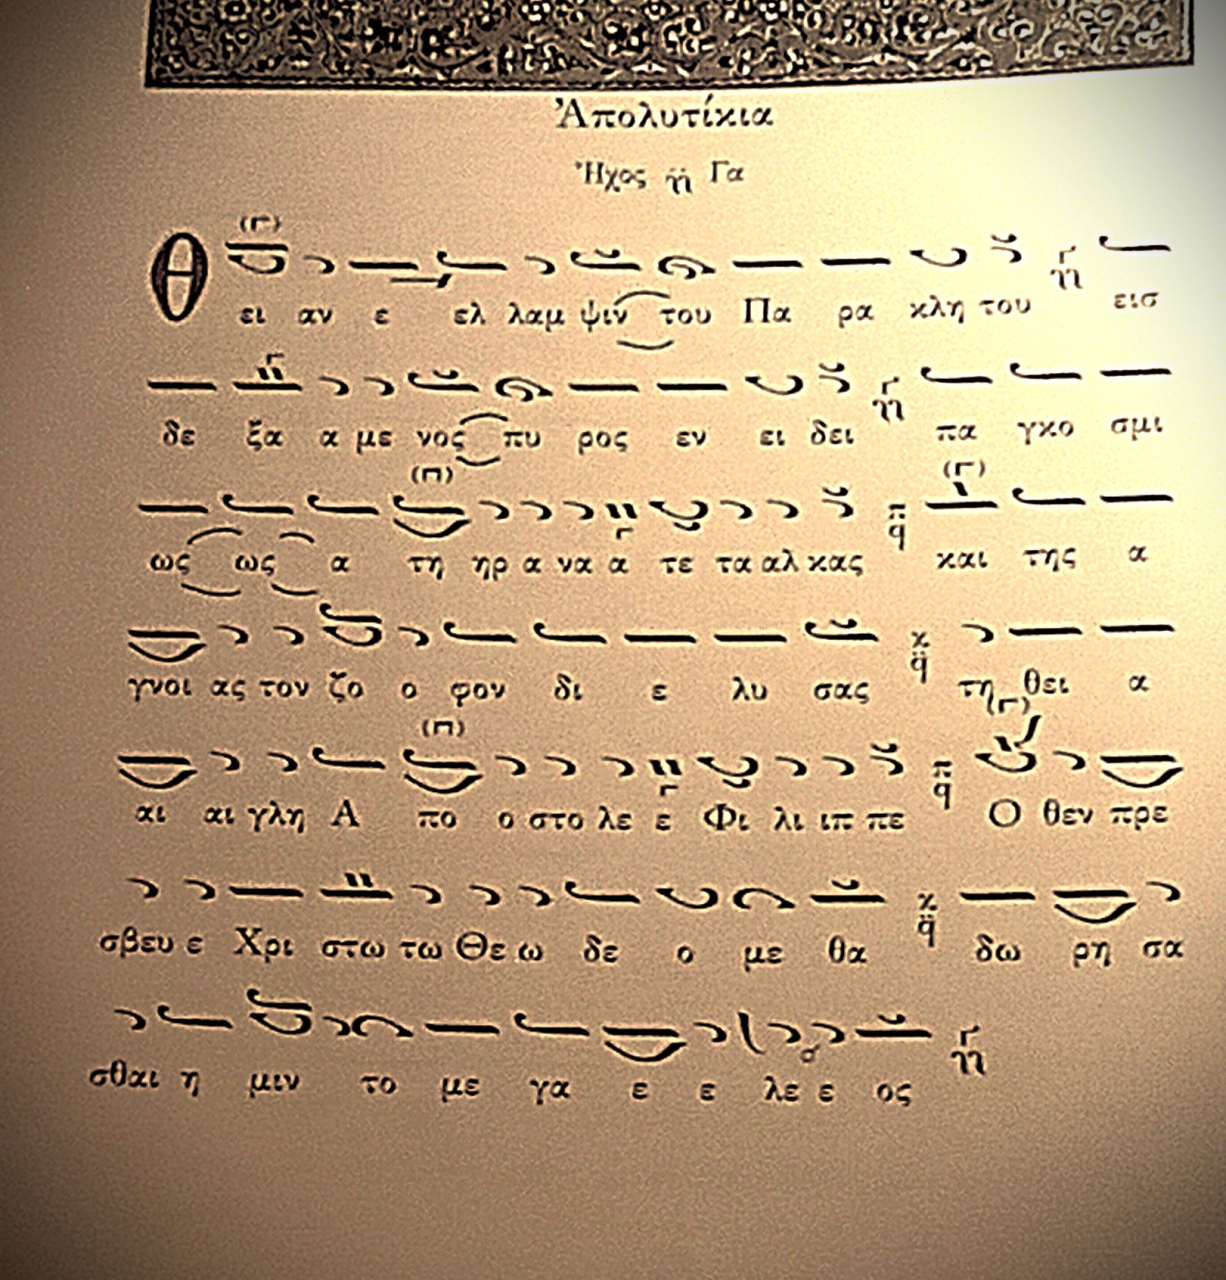 Ἀπολυτίκια
Ἦχος Γα
Θ ει αν ε ελ λαμ ψιν του Πα ρα κλη του εισ
δε ξα α με νος πυ ρος εν ει δει πα γκο σμι
ως ως α τη ηρ α να α τε τα αλ κας και της α
γνοι ας τον ζο ο φον δι ε λυ σας τη θει α
αι αι γλη Α πο ο στο λε ε Φι λι ιπ πε Ο θεν πρε
σβευ ε Χρι στω τω Θε ω δε ο με θα δω ρη σα
σθαι η μιν το με γα ε ε λε ε ος